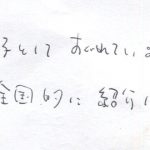 子として すぐれてい
全国的に 紹介